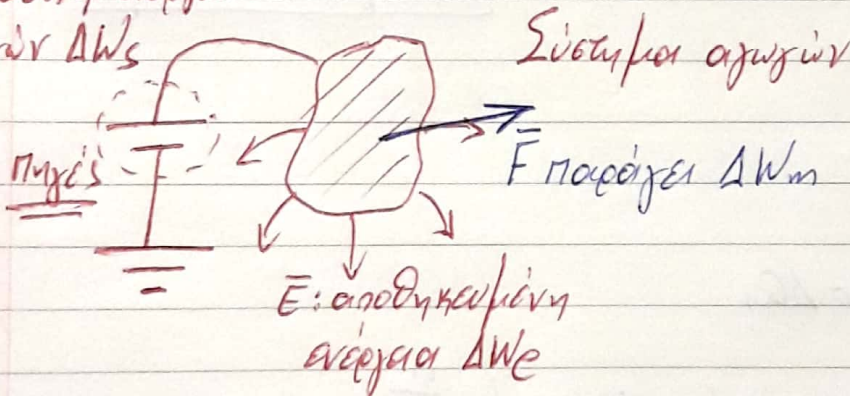 ών ΔWs
Σύστημα αγωγών
πηγές
F̄ παράγει ΔWm
Ē: αποθηκευμένη
ενέργεια ΔWe